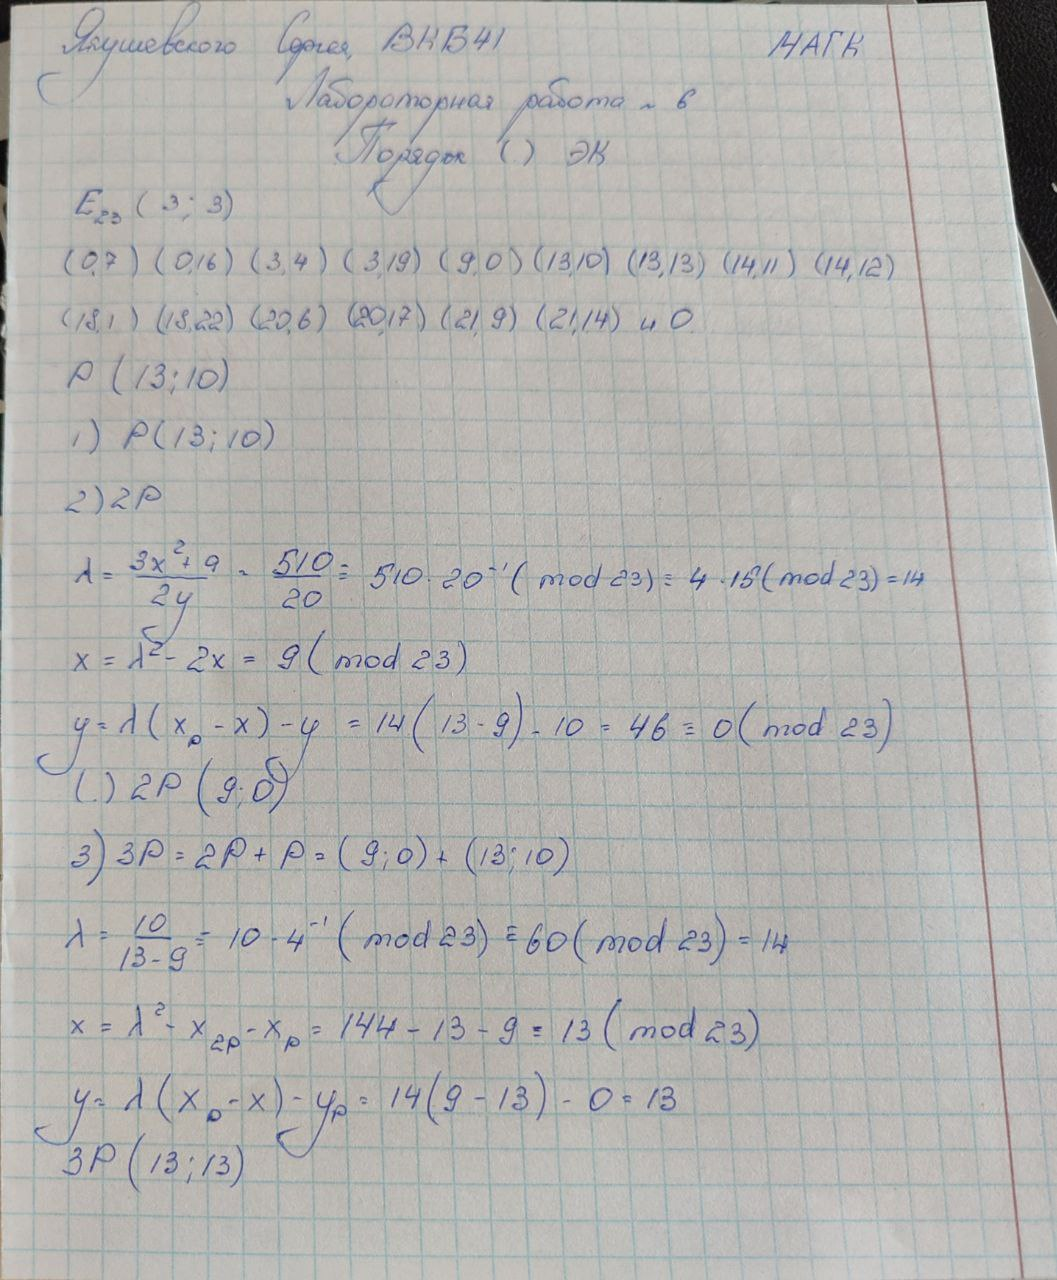 Якушевского Сергея, ВКБ41 МАГК
Лабороторная работа № 6
Порядок (·) ЭК
E₂₃ (3; 3)
(0,7) (0,16) (3,4) (3,19) (9,0) (13,10) (13,13) (14,11) (14,12)
(18,1) (18,22) (20,6) (20,17) (21,9) (21,14) и O
P (13; 10)
1) P(13; 10)
2) 2P
λ = (3x² + a)/(2y) = 510/20 ≡ 510 · 20⁻¹ (mod 23) ≡ 4 · 15 (mod 23) = 14
x = λ² - 2x = 9 (mod 23)
y = λ(xₚ - x) - y = 14(13 - 9) - 10 = 46 ≡ 0 (mod 23)
(·) 2P (9; 0)
3) 3P = 2P + P = (9; 0) + (13; 10)
λ = 10/(13-9) ≡ 10 · 4⁻¹ (mod 23) ≡ 60 (mod 23) = 14
x = λ² - x₂ₚ - xₚ = 144 - 13 - 9 ≡ 13 (mod 23)
y = λ(xₚ - x) - yₚ = 14(9 - 13) - 0 = 13
3P (13; 13)